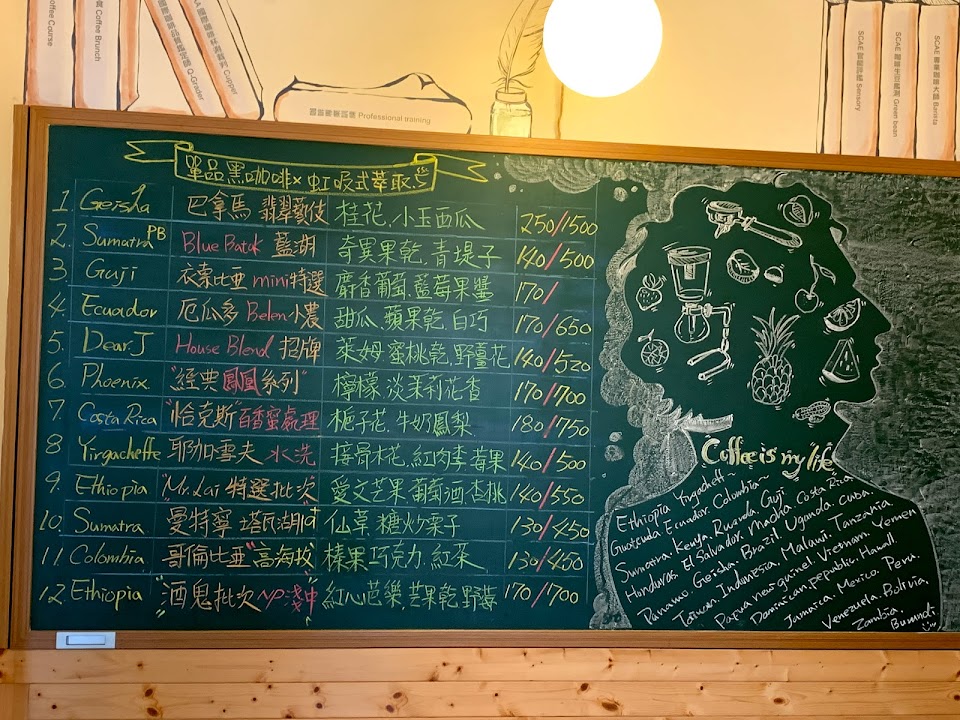 Coffee Course
Coffee Brunch
國際咖啡品質鑑定師 Q-Grader
國際咖啡杯測裁判 Cupper
Professional training
SCAE Sensory
SCAE Green bean
SCAE Barista
單品黑咖啡×虹吸式萃取
1. Geisha 巴拿馬 翡翠藝伎 桂花.小玉西瓜 250/500
2. Sumatra PB Blue Batak 藍湖 奇異果乾.青堤子 140/500
3. Guji 衣索比亞 mini特選 麝香葡萄.藍莓果醬 170/
4. Ecuador 厄瓜多 Belen小農 甜瓜.蘋果乾.白巧 170/650
5. Dear.J House Blend 招牌 萊姆.蜜桃乾.野薑花 140/520
6. Phoenix "經典鳳凰系列" 檸檬.淡茉莉花香 170/700
7. Costa Rica "恰克斯"百香蜜處理 梔子花.牛奶鳳梨 180/750
8 Yirgacheffe 耶加雪夫 水洗 接骨木花.紅肉李.莓果 140/500
9. Ethiopia "Mr.Lai 特選批次" 愛文芒果.葡萄酒.杏桃 140/550
10. Sumatra 曼特寧 塔瓦湖19+ 仙草.糖炒栗子 130/450
11. Colombia 哥倫比亞"高海拔 榛果.巧克力.紅茶 130/450
12. Ethiopia "酒鬼批次 NP淺中 紅心芭樂.芒果乾.野莓 170/700
Coffee is my life
Ethiopia Yirgacheff~
Guatemala Ecuador. Colombia~
Sumatra. Kenya. Rwanda. Guji. Costa Rica.
Honduras. El Salvador. Mocha. Uganda. Cuba.
Panama. Geisha. Brazil. Malawi. Tanzania
Taiwan. Indonesia. Vietnam. Yemen
Papua new guinea. Hawaii.
Dominican republic. Peru.
Jamaica. Mexico. Bolivia.
Venezuela.
Zambia. Burundi